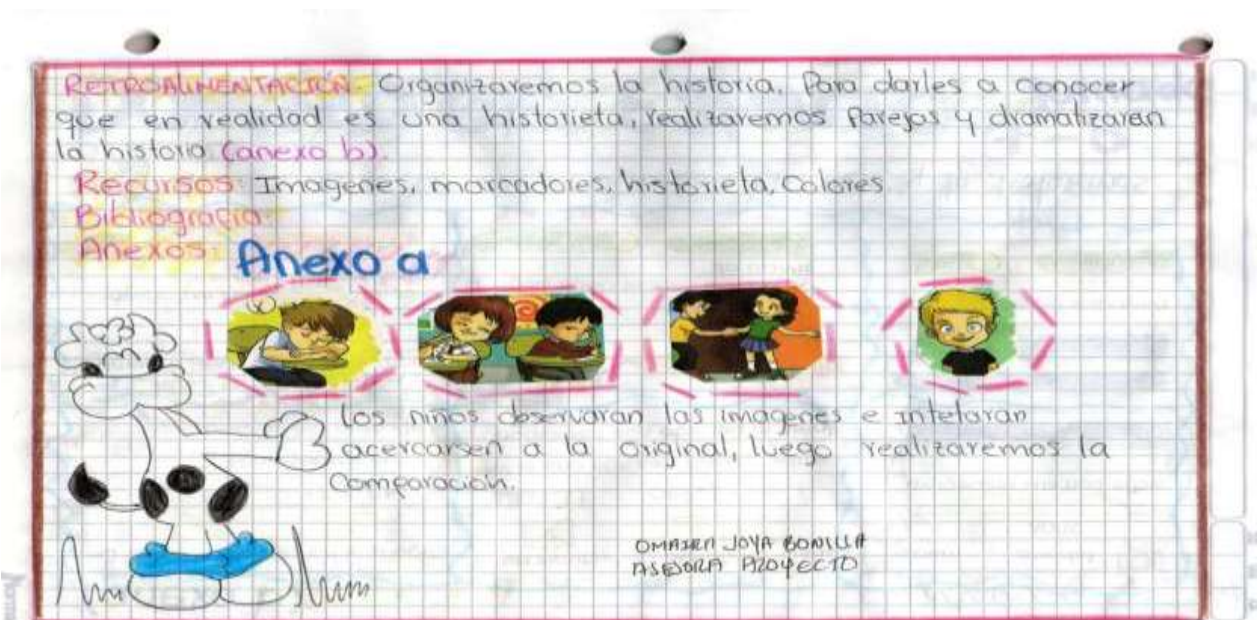 RETROALIMENTACIÓN: Organizaremos la historia. Para darles a conocer
que en realidad es una historieta, realizaremos Parejas y dramatizaran
la historia (anexo b).
Recursos: Imagenes, marcadores, historieta, Colores
Bibliografia:
Anexos:
Anexo a
Los niños observaran las imagenes e intetaran
acercarsen a la original, luego realizaremos la
Comparación.
OMAIRA JOYA BONILLA
ASESORA PROYECTO